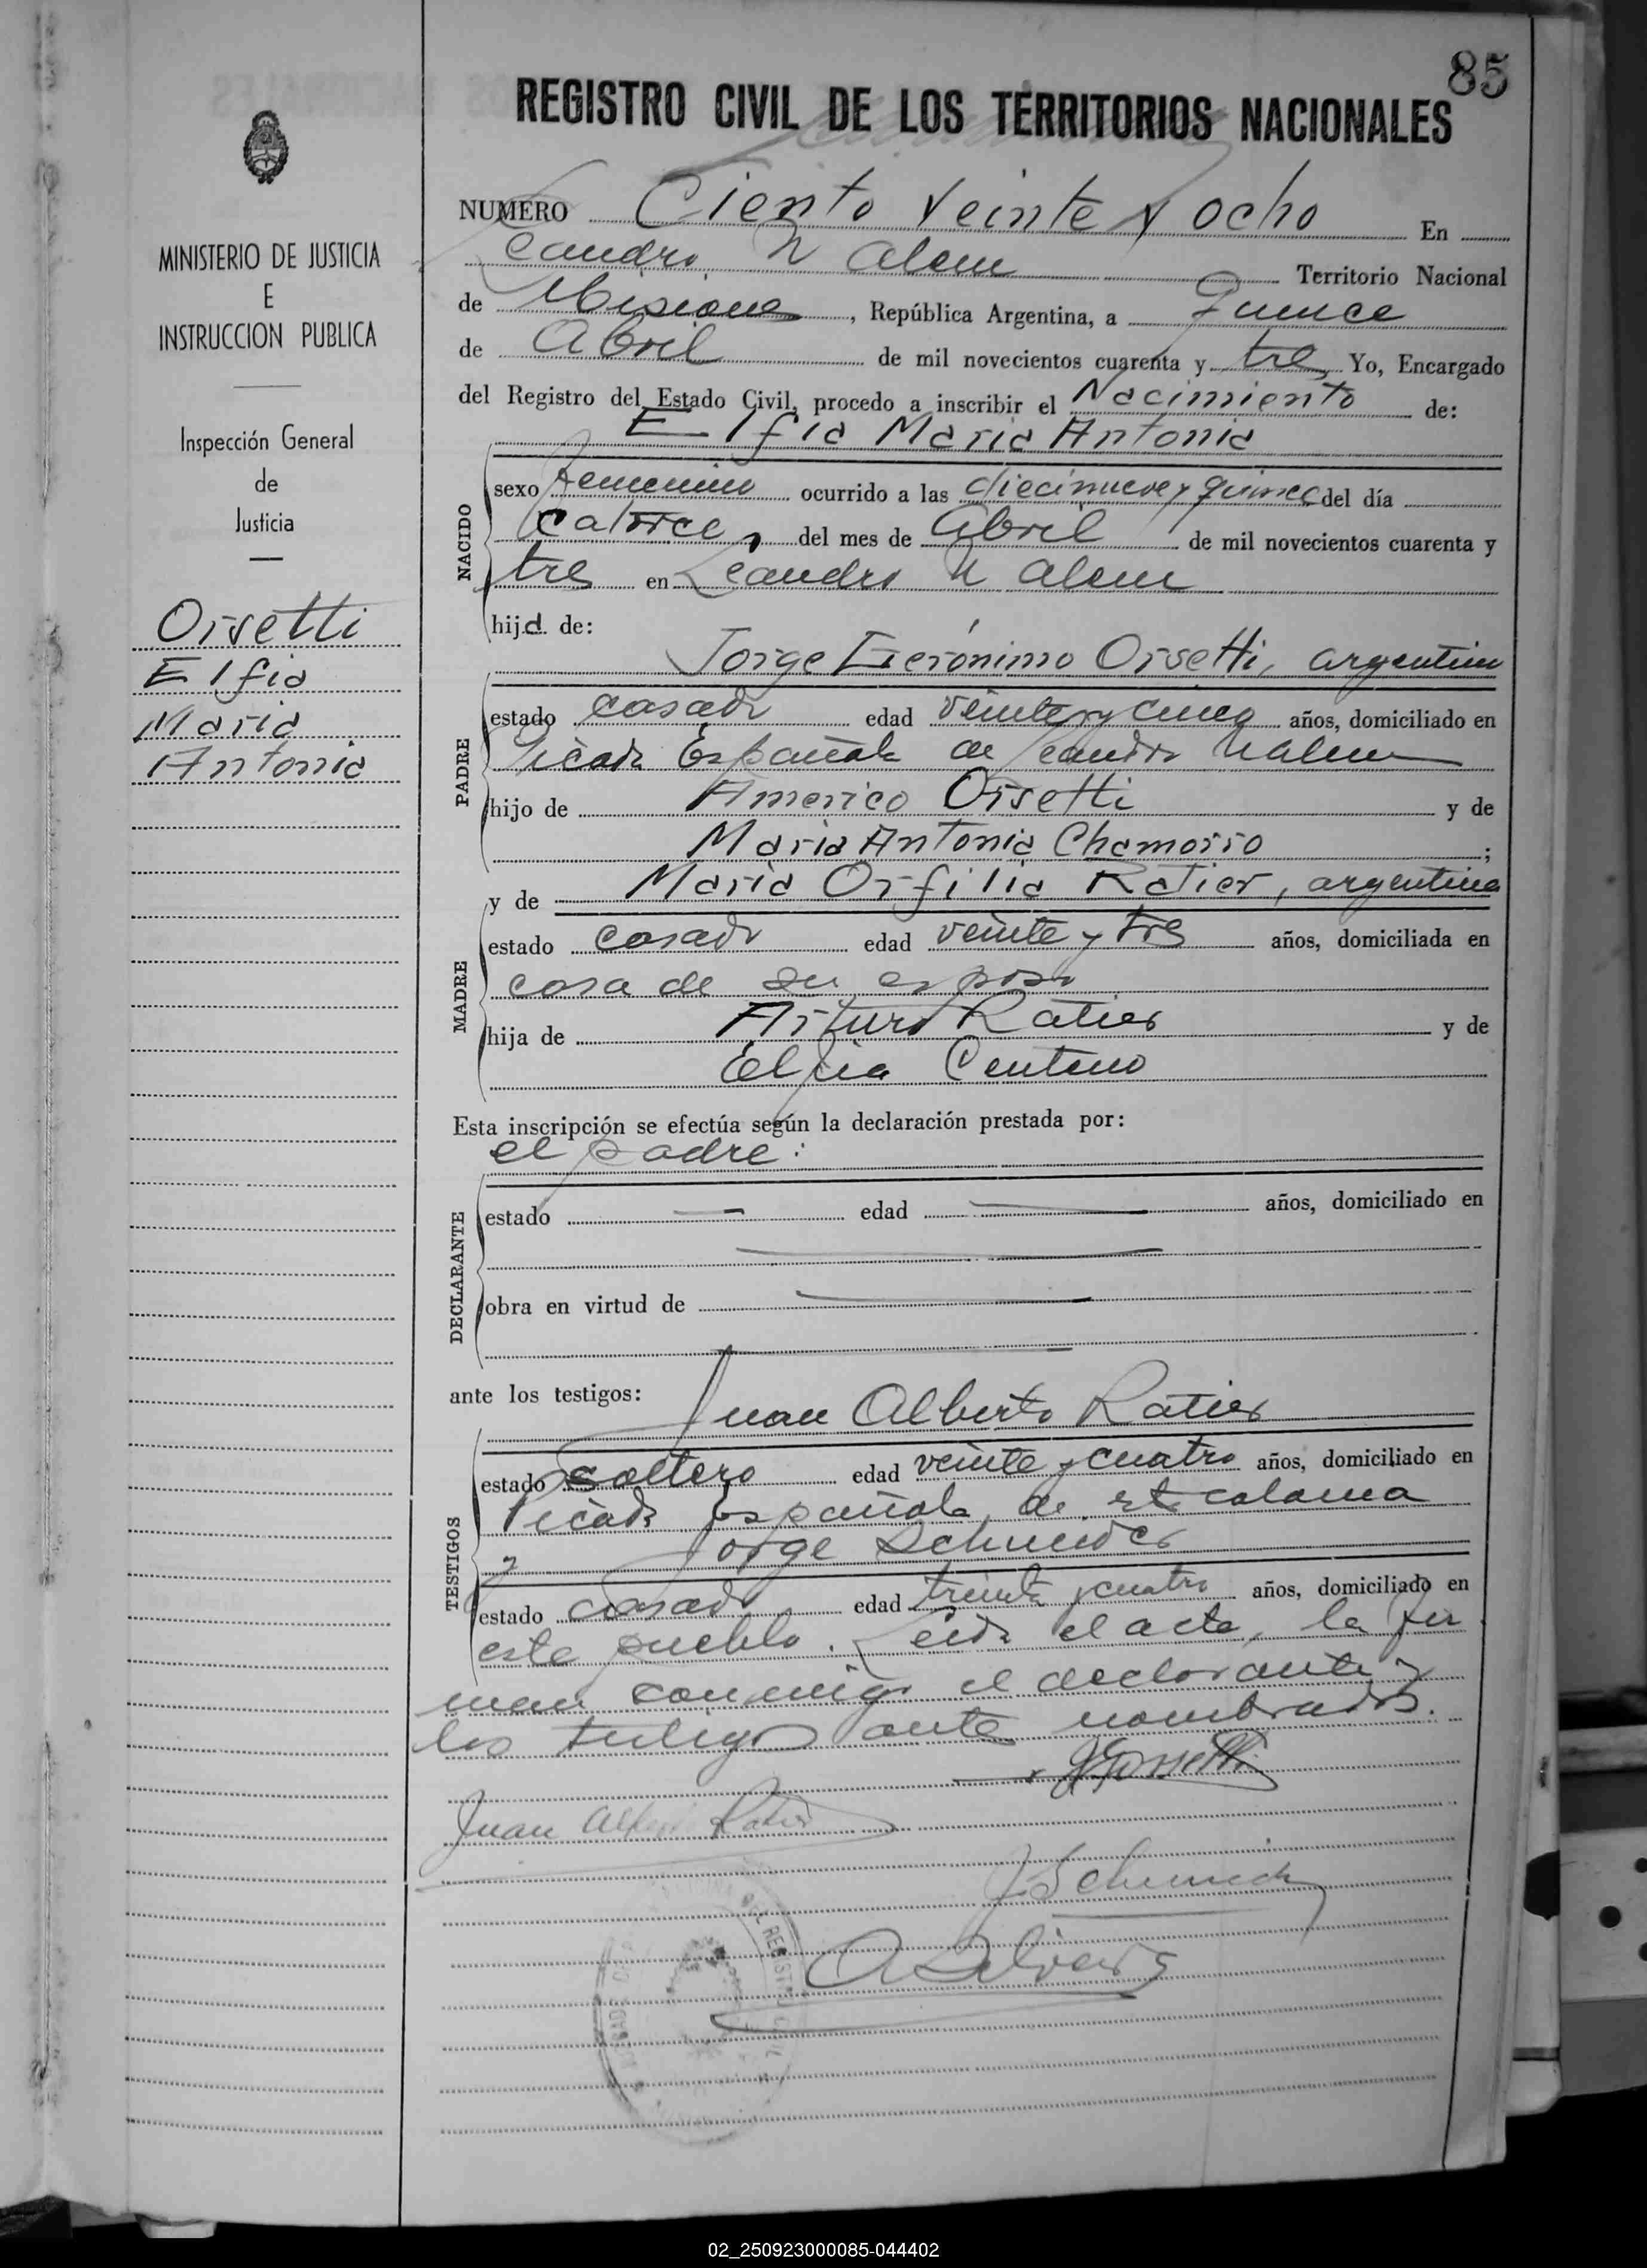 85
REGISTRO CIVIL DE LOS TERRITORIOS NACIONALES
MINISTERIO DE JUSTICIA
E
INSTRUCCION PUBLICA
Inspección General
de
Justicia
Orsetti
Elfia
Maria
Antonia
NUMERO Ciento veinte y ocho En
Leandro N Alem Territorio Nacional
de Misiones, República Argentina, a quince
de Abril de mil novecientos cuarenta y tres Yo, Encargado
del Registro del Estado Civil, procedo a inscribir el Nacimiento de:
Elfia Maria Antonia
NACIDO
sexo femenino ocurrido a las diecinueve y quince del día
catorce, del mes de Abril de mil novecientos cuarenta y
tres en Leandro N Alem
hija de:
Jorge Gerónimo Orsetti, argentino
PADRE
estado casado edad veinte y cinco años, domiciliado en
Picada Española de Leandro N Alem
hijo de Americo Orsetti y de
Maria Antonia Chamorro ;
y de Maria Orfilia Ratier, argentina
MADRE
estado casada edad veinte y tres años, domiciliada en
casa de su esposo
hija de Arturo Ratier y de
Elfia Centeno
Esta inscripción se efectúa según la declaración prestada por:
el padre:
DECLARANTE
estado — edad — años, domiciliado en
obra en virtud de —
ante los testigos:
Juan Alberto Ratier
TESTIGOS
estado soltero edad veinte y cuatro años, domiciliado en
Picada Española de esta colonia
y Jorge Schneider
estado casado edad treinta y cuatro años, domiciliado en
este pueblo. Leida el acta, la fir
man conmigo el declarante y
los testigos ante nombrados.
JGOrsetti
Juan Alberto Ratier
J Schneider
DEL REGISTRO CIVIL
02_250923000085-044402